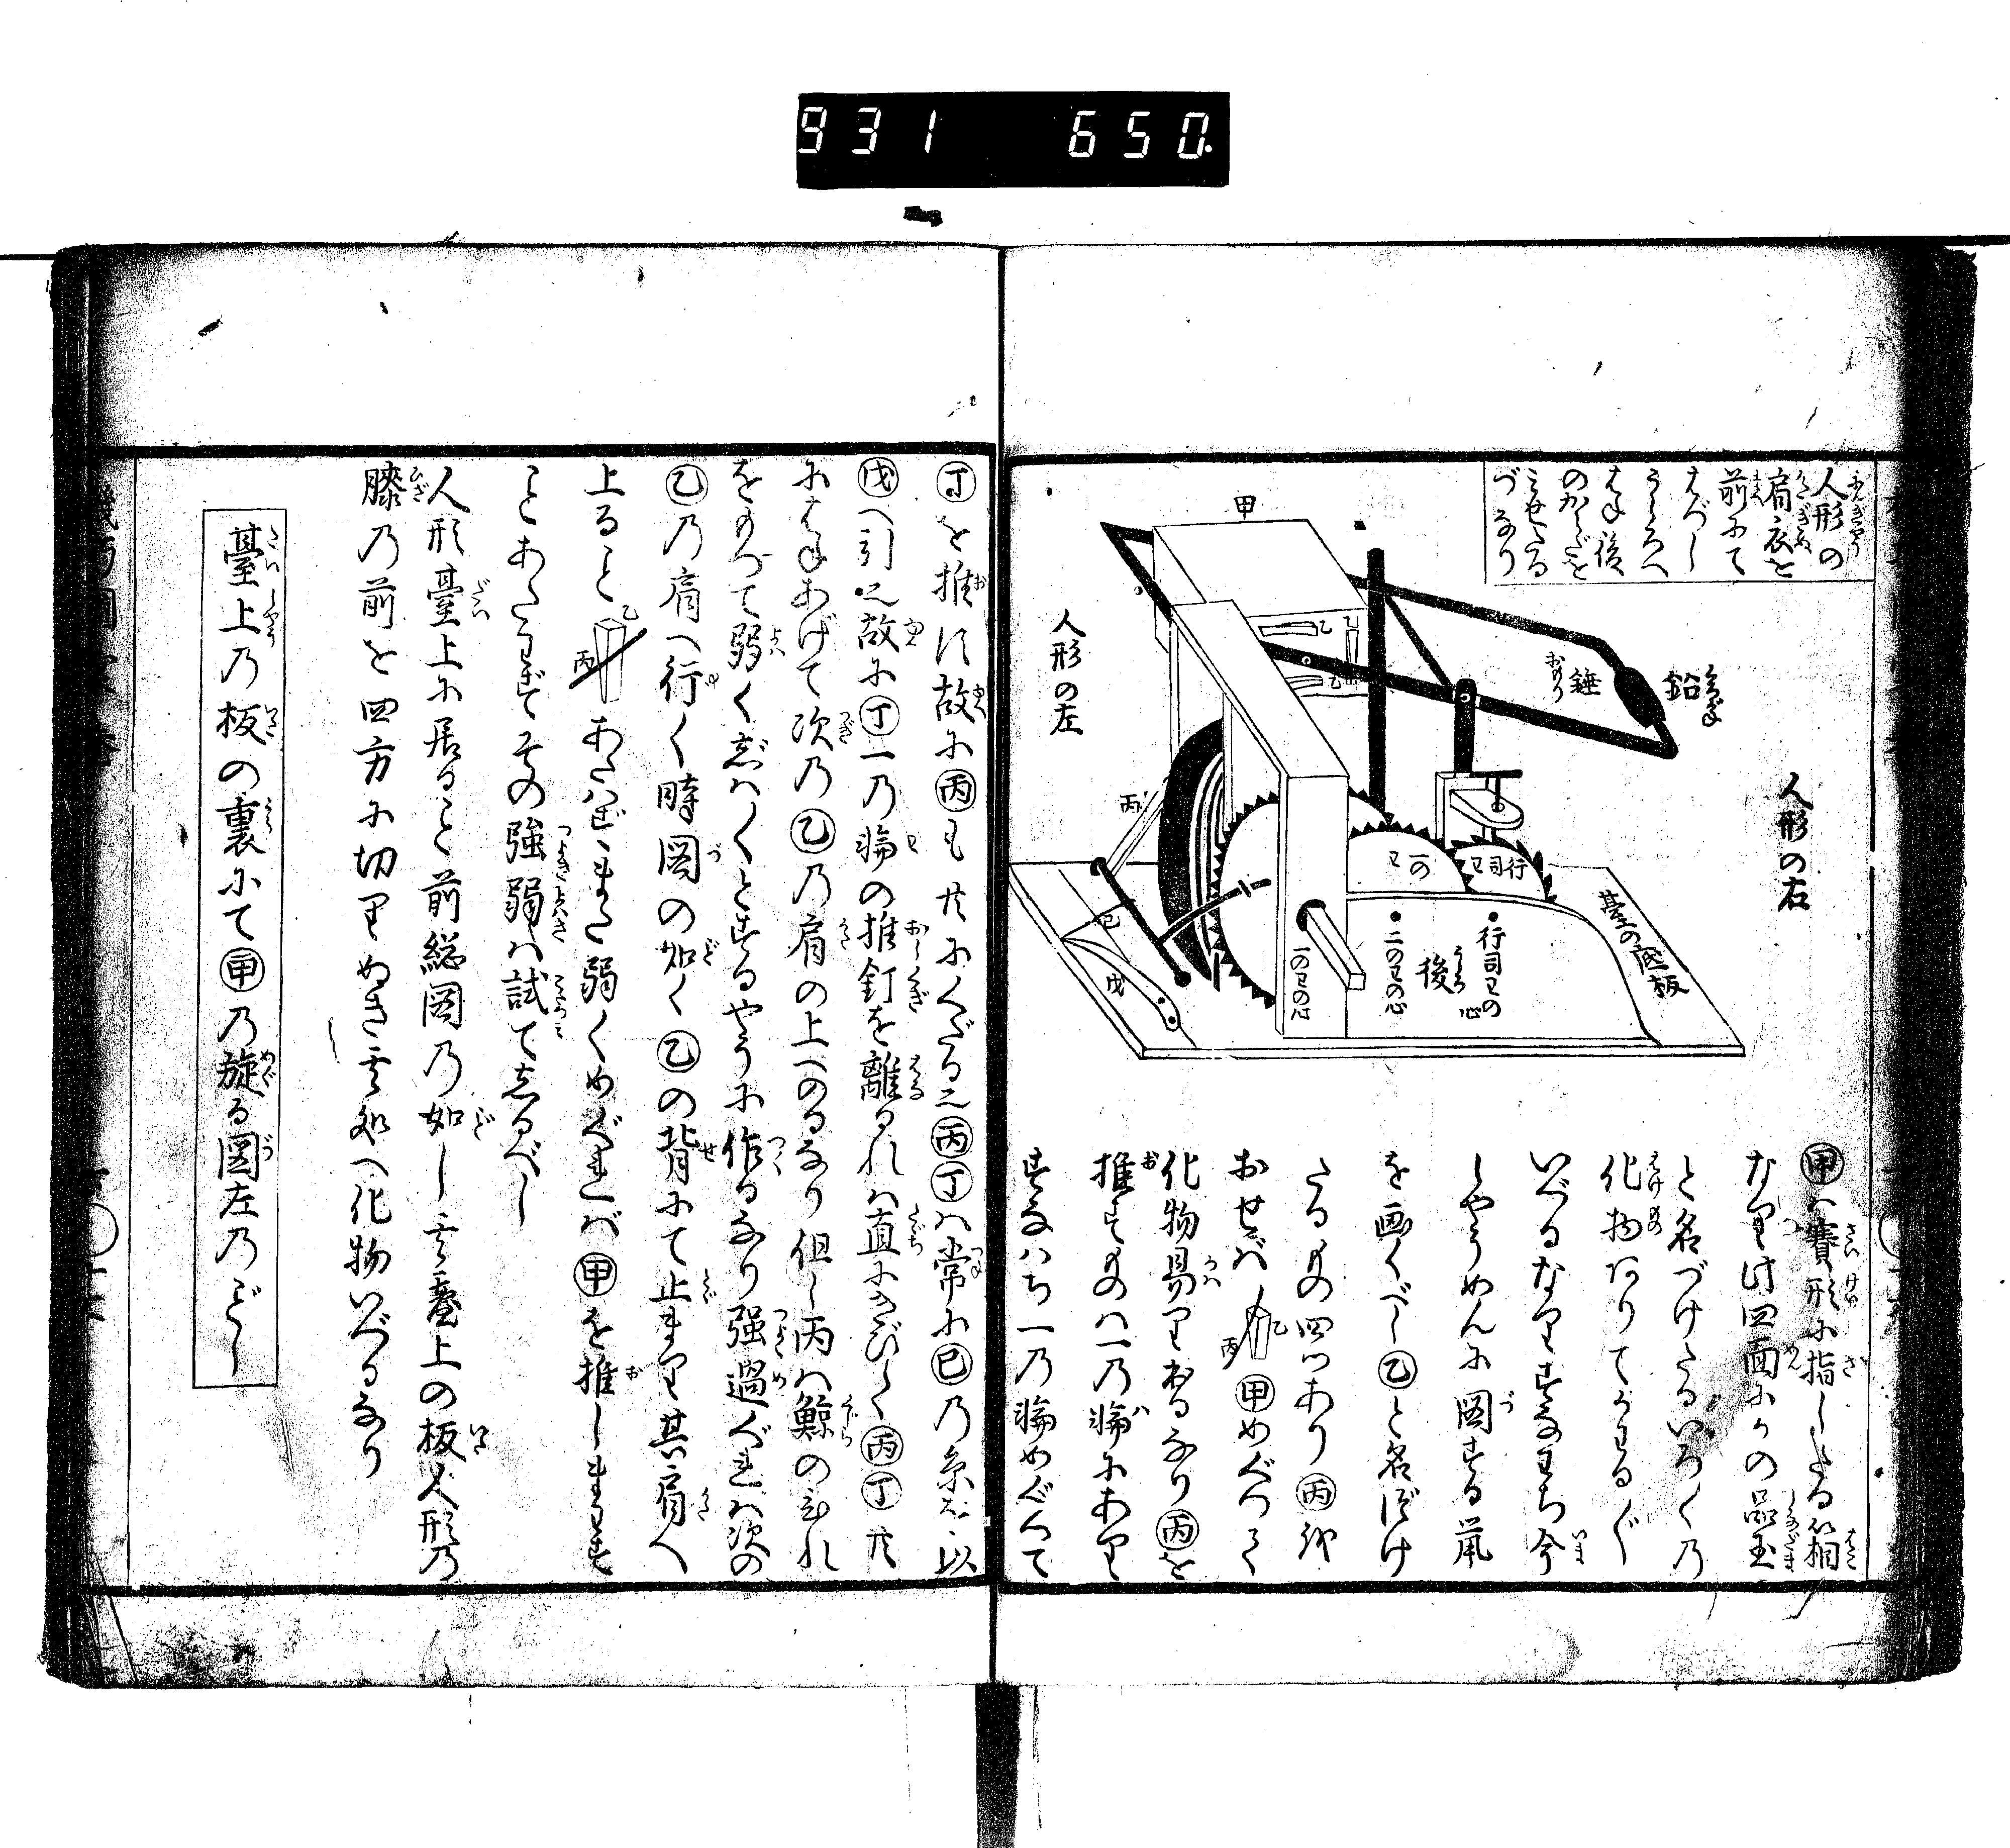 931 650.
人形の
肩衣を
前にて
はづし
うしろへ
はね後
のからだを
みせたる
づなり
甲
人形の左
人形の右
錘
おもり
鉛
なまり
乙
乙
丙
巳
戊
一のワの心
二のワの心
後
うしろ
行司ワの心
二のワ
行司ワ
臺の底板
甲ハ賽形に指したる箱
なり此四面に
の品玉
と名づけたるいろ〱乃
化物ありてかわる〲
いづるなりすなわち今
しやうめんに図する
を画くべし乙と名づけ
たるもの四ツあり丙
おせバ
甲めぐつて
化物易りおるなり丙を
推すものハ一乃輪にあり
すなハち一乃輪めぐつて
丁を推す故に丙も共にくだる也丙丁ハ常に巳乃糸を以
戊へ引也故に丁一乃輪の推釘を離るれハ直にきびしく丙丁共
にはねあげて次乃乙乃肩の上へのるなり但し丙ハ鯨のひれ
をもつて弱くしハ〱とするやうに作るなり强過ぐれハ次の
乙乃肩へ行く時図の如く乙の背にて止まり其肩へ
上ること
乙
丙
あたハずまた弱くめぐれバ甲を推しまわす
ことあたわずその強弱ハ試て志るべし
人形臺上に居ること前総図乃如し其臺上の板人形乃
膝乃前を四方に切りぬき其処へ化物いづるなり
臺上乃板の裏にて甲乃旋る図左乃ごとし